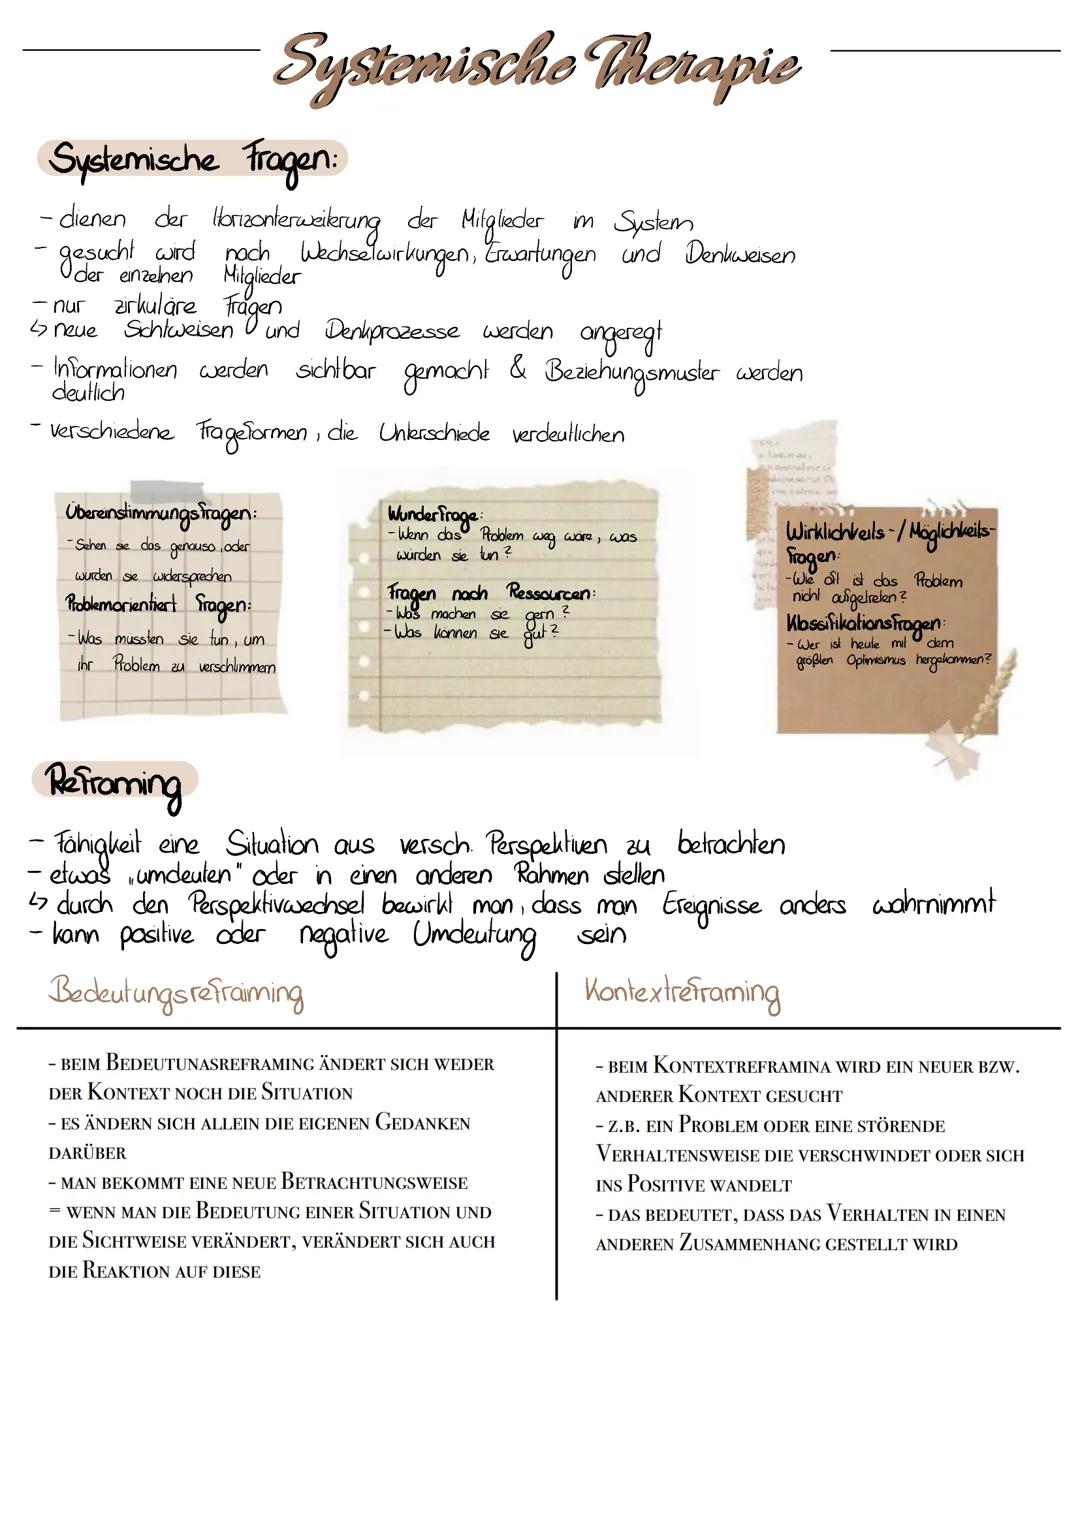 Systemische Therapie
Systemische Fragen:
- dienen der Horizonterweiterung der Mitglieder im System
- gesucht wird nach Wechselwirkungen, Erwartungen und Denkweisen
der einzelnen Mitglieder
- nur zirkuläre Fragen
↳ neue Sichtweisen und Denkprozesse werden angeregt
- Informationen werden sichtbar gemacht & Beziehungsmuster werden
deutlich
- verschiedene Frageformen, die Unterschiede verdeutlichen
Übereinstimmungsfragen:
- Sehen sie das genauso, oder
würden sie widersprechen
Problemorientiert Fragen:
- Was müssten sie tun, um
ihr Problem zu verschlimmern
Wunderfrage:
- Wenn das Problem weg wäre, was
würden sie tun?
Fragen nach Ressourcen:
- Was machen sie gern?
- Was können sie gut?
Wirklichkeits-/Möglichkeits-
fragen:
- Wie oft ist das Problem
nicht aufgetreten?
Klassifikationsfragen:
- Wer ist heute mit dem
größten Optimismus hergekommen?
Reframing
- Fähigkeit eine Situation aus versch. Perspektiven zu betrachten
- etwas „umdeuten" oder in einen anderen Rahmen stellen
↳ durch den Perspektivwechsel bewirkt man, dass man Ereignisse anders wahrnimmt
- kann positive oder negative Umdeutung sein
Bedeutungsrefraiming
- BEIM BEDEUTUNASREFRAMING ÄNDERT SICH WEDER
DER KONTEXT NOCH DIE SITUATION
- ES ÄNDERN SICH ALLEIN DIE EIGENEN GEDANKEN
DARÜBER
- MAN BEKOMMT EINE NEUE BETRACHTUNGSWEISE
= WENN MAN DIE BEDEUTUNG EINER SITUATION UND
DIE SICHTWEISE VERÄNDERT, VERÄNDERT SICH AUCH
DIE REAKTION AUF DIESE
Kontextreframing
- BEIM KONTEXTREFRAMINA WIRD EIN NEUER BZW.
ANDERER KONTEXT GESUCHT
- Z.B. EIN PROBLEM ODER EINE STÖRENDE
VERHALTENSWEISE DIE VERSCHWINDET ODER SICH
INS POSITIVE WANDELT
- DAS BEDEUTET, DASS DAS VERHALTEN IN EINEN
ANDEREN ZUSAMMENHANG GESTELLT WIRD